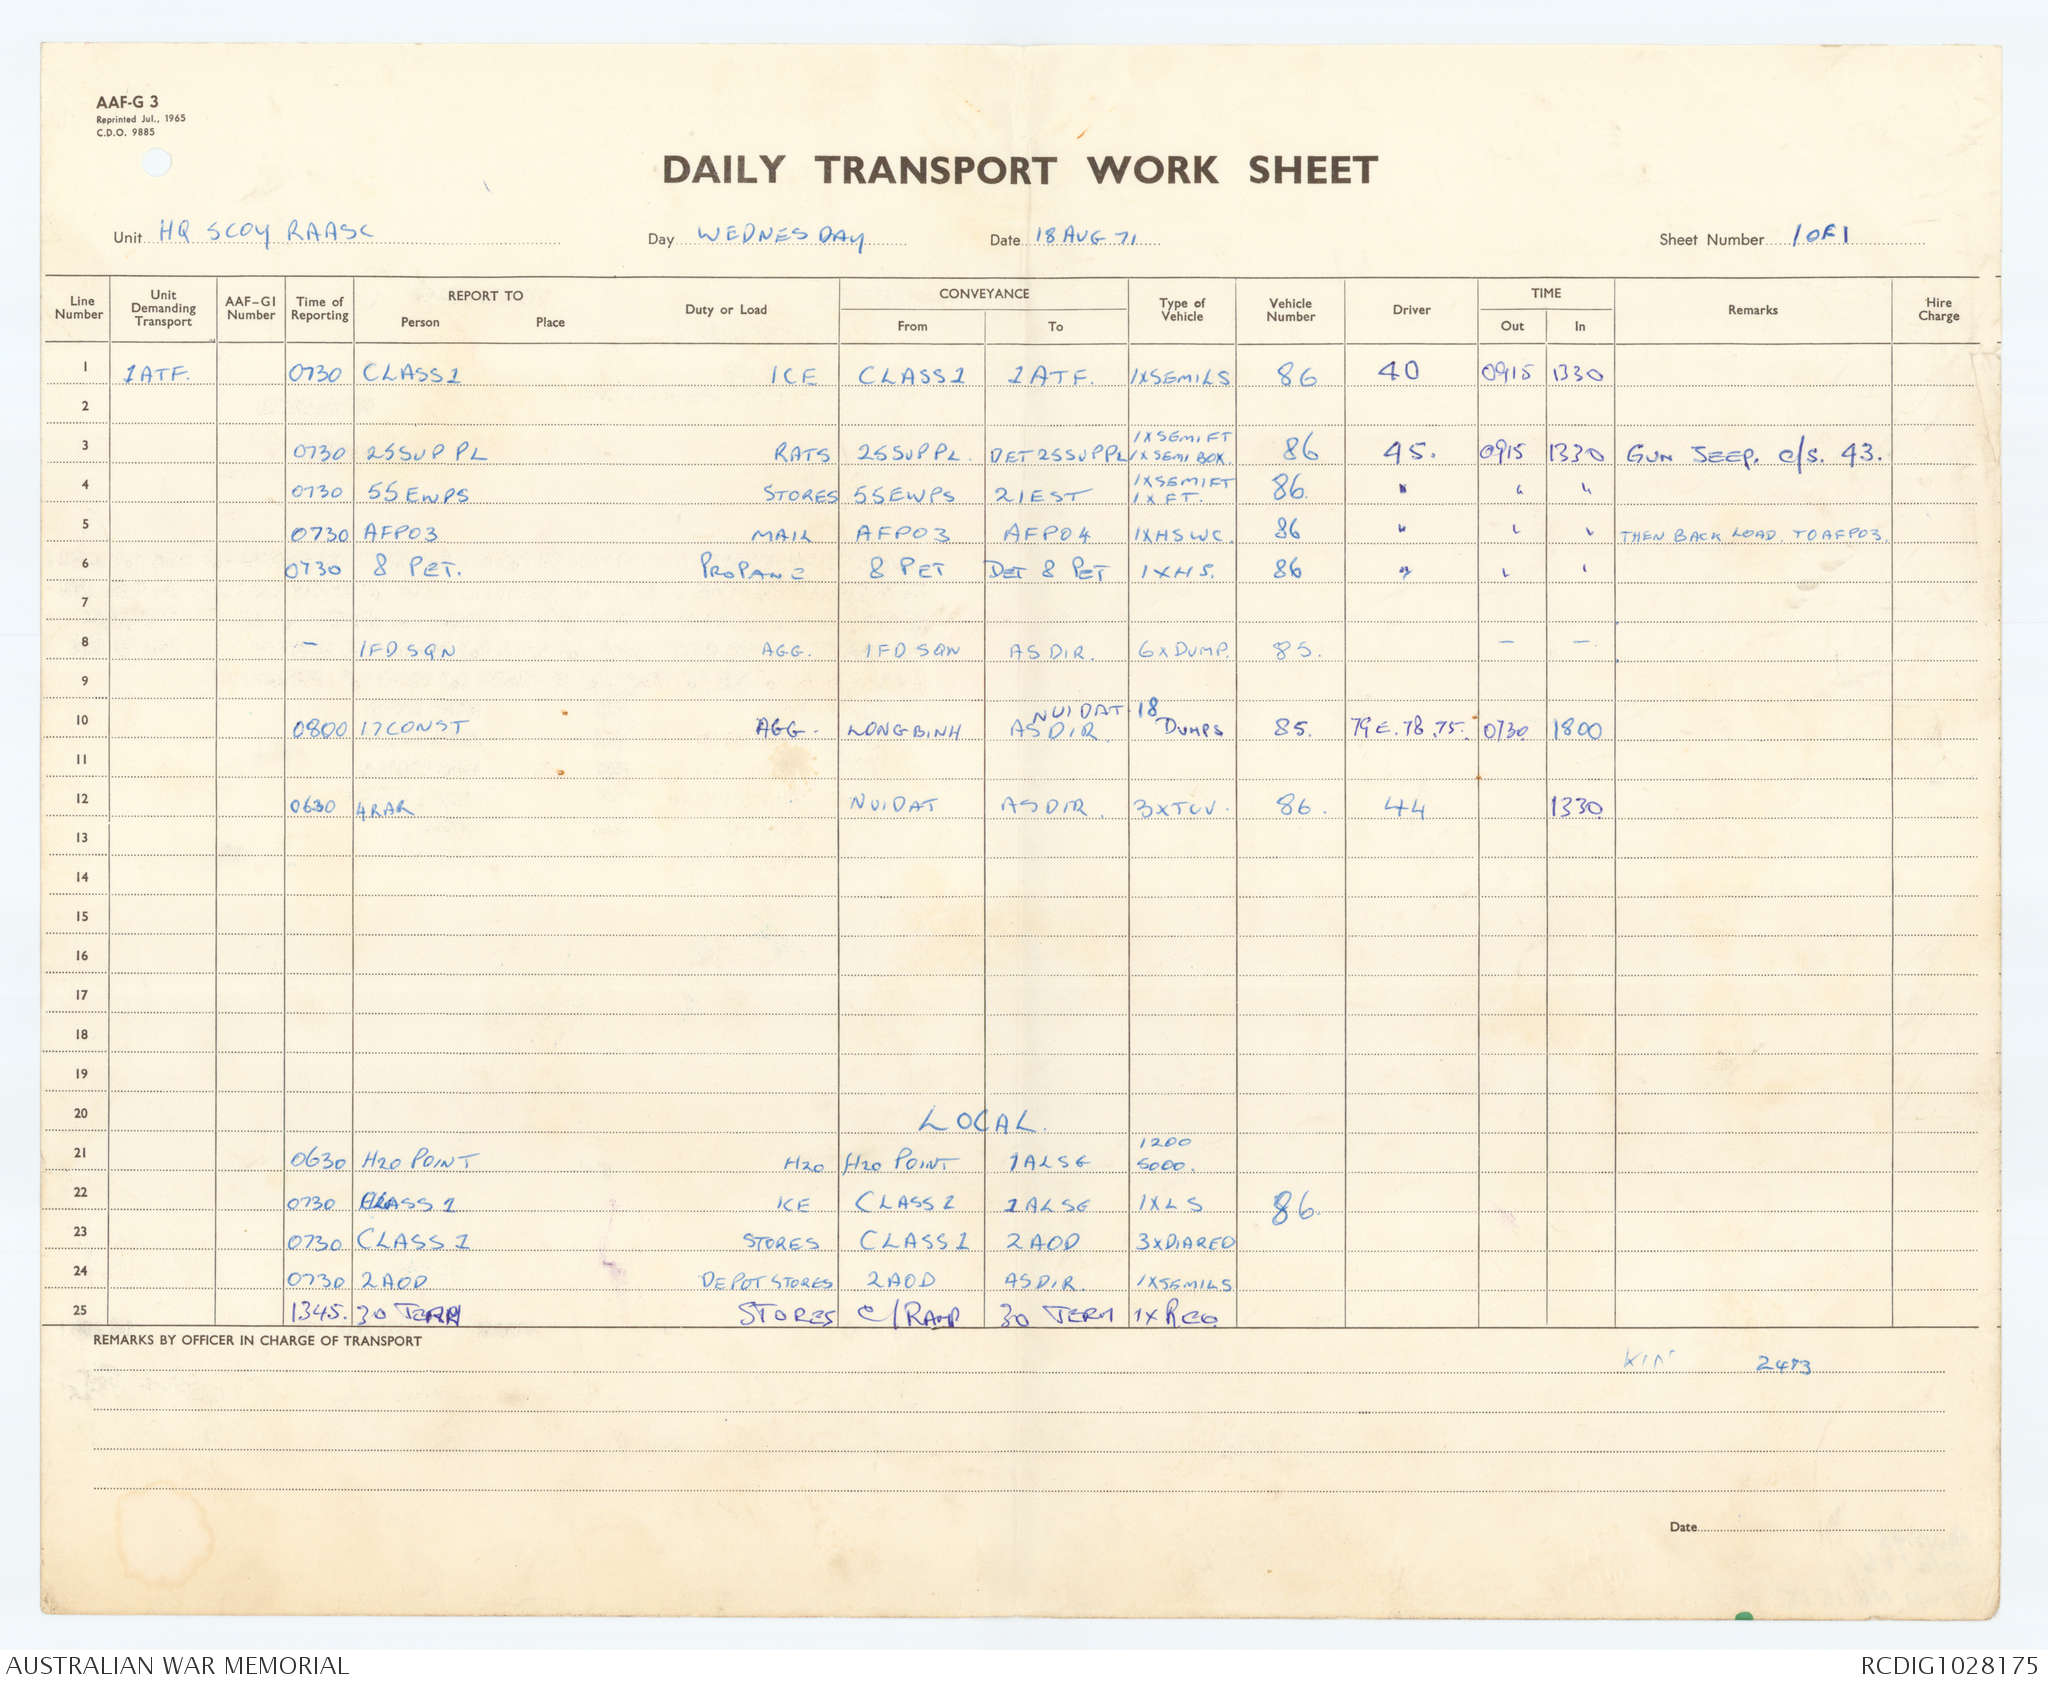 AAF-G 3
Reprinted Jul., 1965
C.D.O. 9885
DAILY TRANSPORT WORK SHEET
Unit HQ 5COY RAASC Day WEDNESDAY Date 18 AUG 71 Sheet Number 1 OF 1
Line Number Unit Demanding Transport AAF-G1 Number Time of Reporting REPORT TO Person Place Duty or Load CONVEYANCE From To Type of Vehicle Vehicle Number Driver TIME Out In Remarks Hire Charge
1 1ATF. 0730 CLASS1 ICE CLASS1 1ATF. 1XSEMILS 86 40 0915 1330
2
3 0730 25SUP PL RATS 25SUP PL. DET 25SUP PL 1XSEMI FT 1XSEMI BOX. 86 45. 0915 1330 GUN JEEP. C/S. 43.
4 0730 55EWPS STORES 55EWPS 21EST 1XSEMIFT 1X FT. 86. " " "
5 0730 AFPO3 MAIL AFPO3 AFPO4 1XHSWC. 86 " " " THEN BACK LOAD. TO AFPO3.
6 0730 8 PET. PROPANE 8 PET DET 8 PET 1XHS. 86 " " "
7
8 — 1FD SQN AGG. 1FD SQN ASDIR. 6XDUMP. 85. — —
9
10 0800 17CONST AGG. LONGBINH NUIDAT ASDIR. 18 DUMPS 85. 79E.78.75. 0730 1800
11
12 0630 4RAR NUIDAT ASDIR. 3XTCV. 86. 44 1330
13
14
15
16
17
18
19
20 LOCAL.
21 0630 H2O POINT H2O H2O POINT 1ALSG 1200 5000.
22 0730 CLASS 1 ICE CLASS1 1ALSG 1XLS 86.
23 0730 CLASS 1 STORES CLASS1 2AOD 3XDIARED
24 0730 2AOD DEPOT STORES 2AOD ASDIR. 1XSEMILS
25 1345. 30 TERM STORES C/RAMP 30 TERM 1X REO
REMARKS BY OFFICER IN CHARGE OF TRANSPORT
Date
AUSTRALIAN WAR MEMORIAL RCDIG1028175